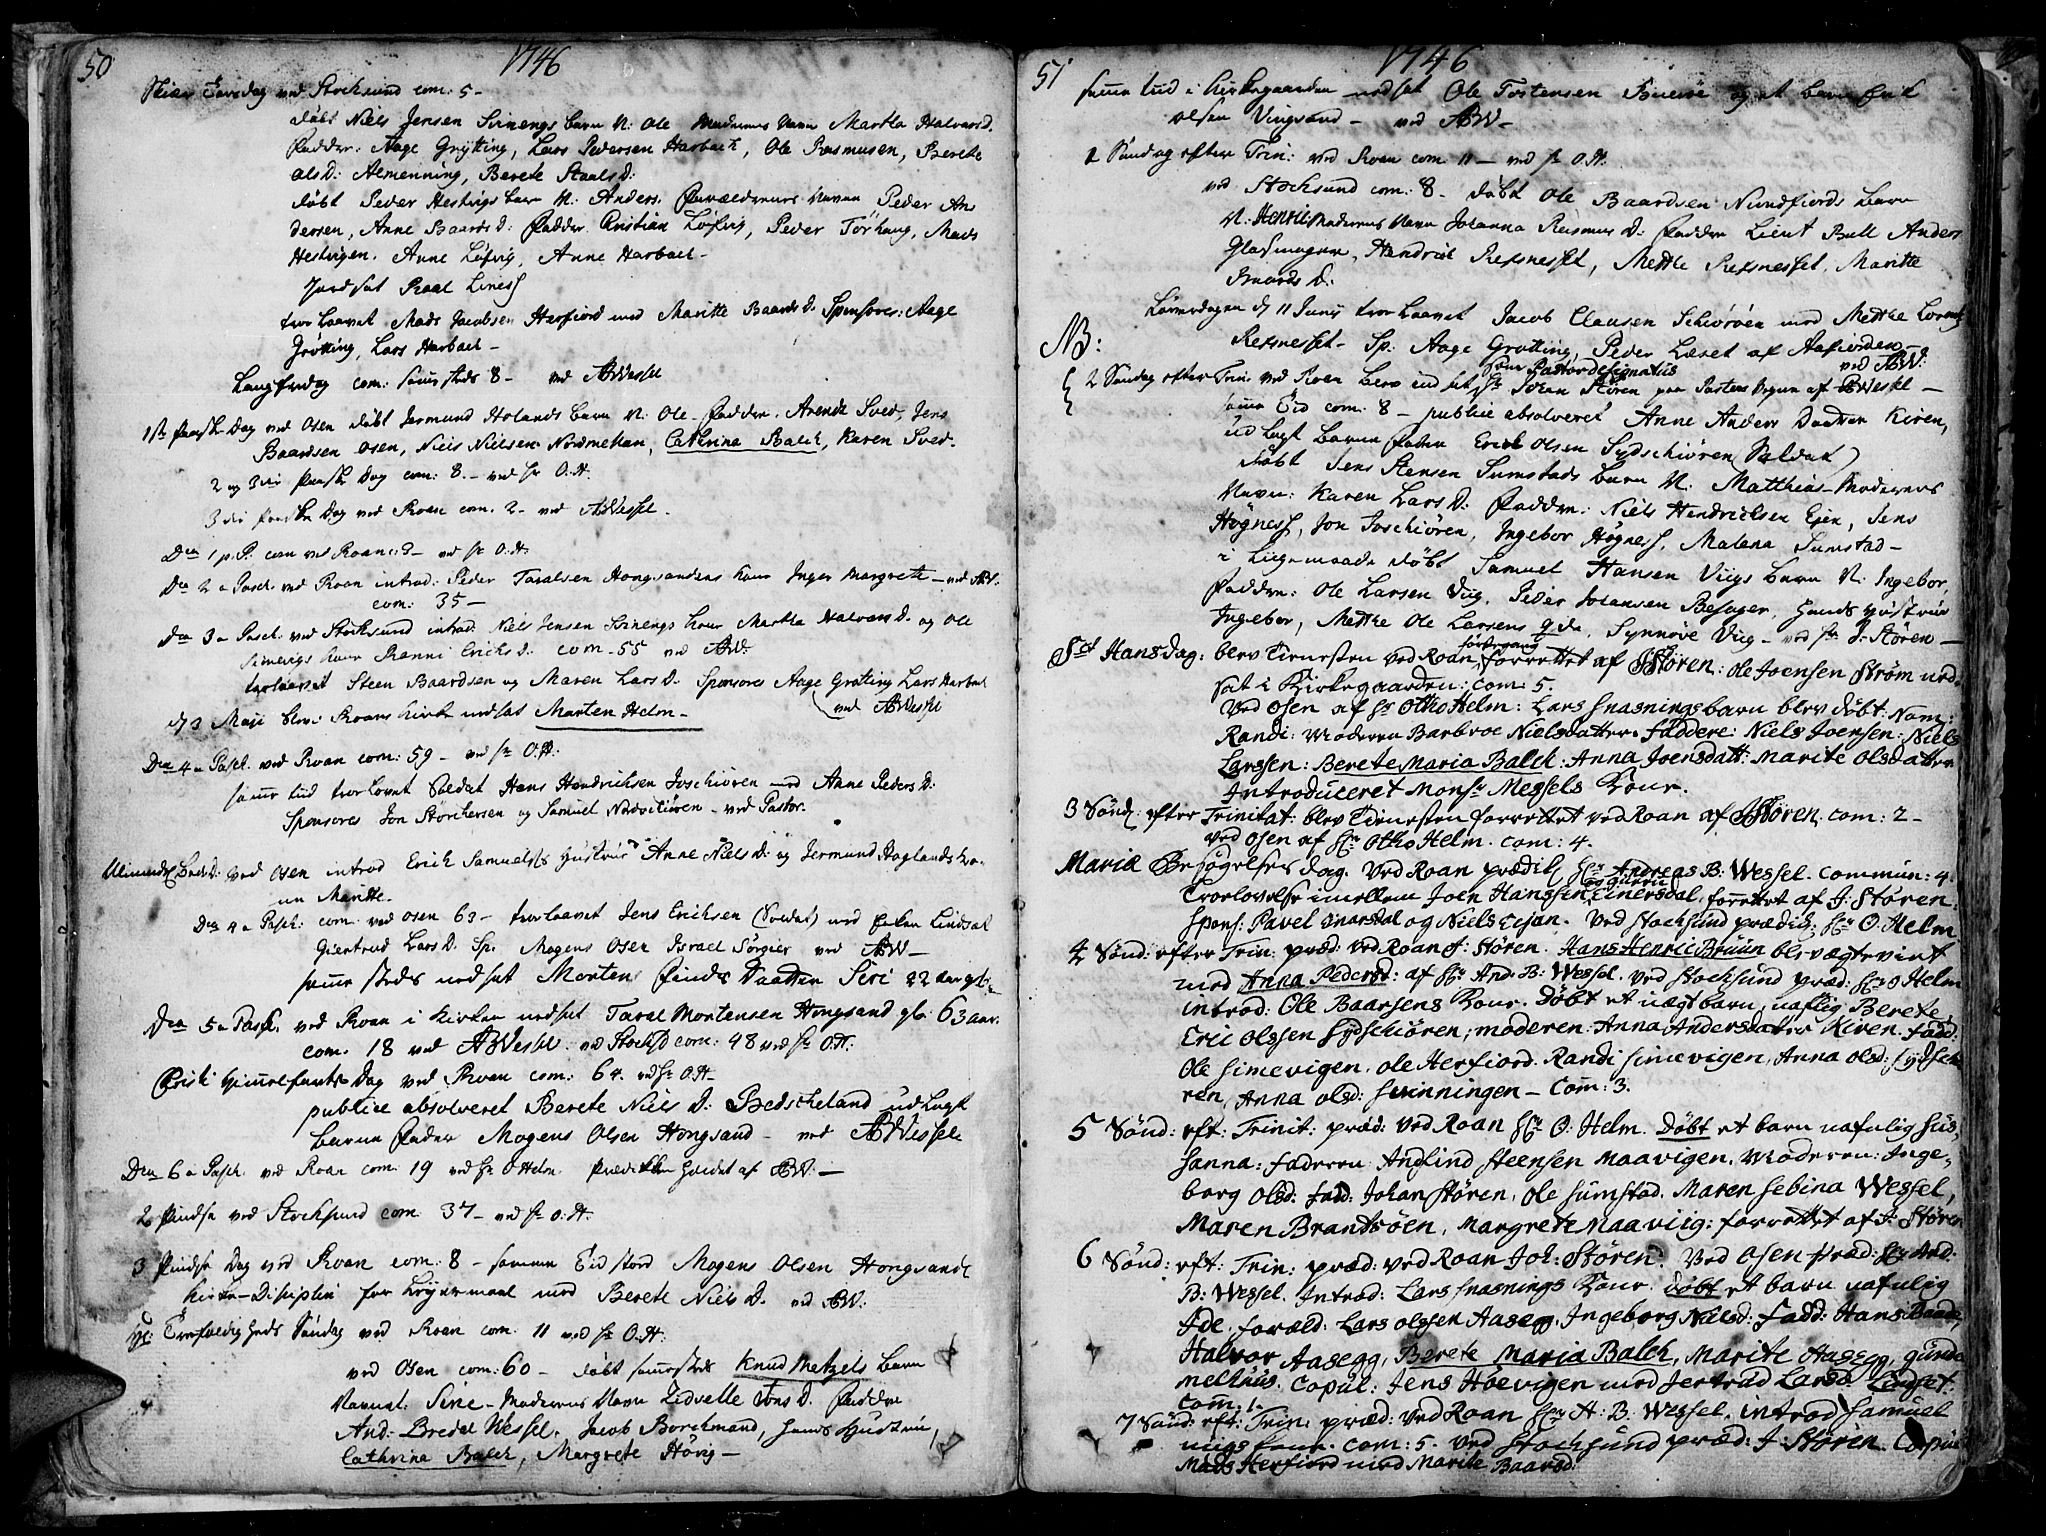 50
1746
Skiær Torsdag ved Stocksund com: 5-
Døbt Niels Jensen Svinengs barn N: Ole Moderens Navn Martha Halvars D.
Fadder: Aage Grytting, Lars Pedersen Harbach, Ole Rasmusen, Berete
Ols D: Almenning, Berete Staals D:
Døbt Peder Hestvigs barn N: Anders, Forældrenes Navne Peder An
dersen, Anne Baards D: Fadder. Cristian Løfvig, Peder Tørhaug, Mads
Hestvigen. Anne Løfvig, Anne Harbach-
Jordsat Roal Liness
trolovet Mads Jacobsen Harfiord med Maritte Baards D. Sponsores: Aage
Grøtting, Lars Harbach-
Langfredag com: sammesteds 8- ved ABWessel
1ste Paaske Dag ved Osen døbt Jermund Holands barn N: Ole Fadder. Arendt Sved, Jens
Baardsen Osen, Niels Nielsen Nordmehan, Cathrina Balch, Karen Sved.
2 og 3die Paaske Dag com: 8.- ved Hr O.H.
3die Paaske Dag ved Roan com. 2- ved ABWessel.
Dca 1 p. P. com ved Roan: 3- ved Hr O.H.
Dca 2 a Pasch. ved Roan introd: Peder Taralsen Hongsandens kone Inger Margrete- ved AW.
com: 35-
Dca 3 a Pasch. ved Stocksund introd. Niels Jensen Svinengs kone Martha Halvars D. og Ole
Simevigs kone Ranni Erichs D. com-55 ved AW.
trolovet Steen Baardsen og Maren Lars D. Sponsores Aage Grøting Lars Harbach
ved ABWessel
d 3 Maji blev i Roans kirke nedsat Morten Helm-
Dca 4 a Pasch. ved Roan com: 59- ved Hr O.H:
samme tid trolovet Soldat Hans Hendrichsen Joschiøren med Anne Peders D:
Sponsores Jon Størchersen og Samuel Nordschiøren- ved Pastor.
Almindel. Bede D: ved Osen introd Erich Samuels Hustrue Anne Niels D. og Jermund Hoglands ko
ne Maritte-
Dca 4 a Pasch: com ved Osen 63- trolovet Jens Erichsen (Soldat) med Enken Lindset
Giertrud Lars D. Sp. Mogens Osen Israel Sørgier ved AW-
samme steds nedsat Morten Datter Siri 22 aar gl.
Dca 5 a Pasch. ved Roan i kirken nedsat Taral Mortensen Hongsand gl: 63 aar.
com. 18 ved ABWessel. ved Stocksd com: 48 ved Hr O.H.
Christi Himmelfarts Dag ved Roan com: 64. ved Hr O.H-
publice absolveret Berete Niels D: Bedscheland udlagt
barne Fader Mogens Olsen Hongsand- ved ABWessel
Dca 6 a Pasch. ved Roan com: 19 ved Hr O Helm Prædiken holdet af ABW-
2 Pindse ved Stocksund com: 37- ved Hr O.H.
3 Pindse Dag ved Roan com: 8- samme Tid stod Mogens Olsen Hongsand
kirke-Disciplin for Leyermaal med Berete Niels D. ved ABW:
Trefoldigheds Søndag ved Roan com. 11 ved Hr O.H.
ved Osen com: 60- døbt sammesteds Knud Metzels barn
Navnet: Sine- Moderens Navn Zidselle Tøns D. Faddre
And: Bredal Wessel, Jacob Borchmand, hands hustrue,
Cathrina Balch, Margrete Høng-
51
1746
samme tiid i kirkegaarden nedsat Ole Tostensen og et barn
olsen Vingsand- ved ABW-
1 Søndag efter Trin: ved Roan com 11- ved Hr O.H.
ved Stocksund com: 8- døbt Ole Baardsen Nundfiords barn
N: Henric Moderens Navn Johanna Rasmus D: Faddre Lieut Bull Anders
Glasmager, Hendrich Refsnesset, Mettke Refsnesset. Maritte
Baards D:
Løverdagen d 11 Junij trolovet Jacob Clausen Schiørøen med Mettke Lorentz
NB:
Refsnesset- Sp: Aage Grøtting, Peder Læret af Aafiorden-
som Pastor designatus ved ABW:
2 Søndag efter Trin: ved Roan blev indsat Hr Johan Støren paa Pastors Vegne af ABWessel-
samme Tid com: 8- publice absolveret Anne Anders Daatter Kiren,
udlagt barne fader Erich Olsen Sydschiøren (Soldat)
Døbt Jens Stensen Sumstads barn N. Matthias- Moderens
Navn: Karen Lars D: Faddre: Niels Hendrichsen Ejen, Jens
Høgness, Jon Joschiøren, Ingebor Høgness, Malena Sumstad-
i liige maade døbt Samuel Hansen Viigs barn N: Ingebor,
Faddre: Ole Larsen Viig, Peder Johansen Besager, hands hustrue
Ingebor, Mettke Ole Larsens qvi, Synnøve Viig- ved Hr J. Støren-
Sct Hansdag: blev Tienesten ved Roan forrettet af JStøren: Ole Joensen Strøm ned
sat i Kirkegaarden: com: 5.
Ved Osen af Hr Otho Helm: Lars Snasnings barn blev døbt: Nom:
Randi: Moderen Barbroe Nielsdatter: Faddere: Niels Joensen: Niels
Larssen: Berete Maria Balch: Anna Joensdatt: Marite Olsdatter
Introduceret Monsr Messels Kone.
3 Sønd: efter Trinitat: blev Tienesten forrettet ved Roan af JStøren. com: 2-
ved Osen af Hr Otho Helm. com: 4.
Mariæ Besøgelses dag. Ved Roan prædik: Hr Andreas B: Wessel. commun: 4.
Trolovelse imellem Joen Hanssen Einersdal, forrettet af J: Støren:
spons: Pavel Einarsdal og Niels Eijan. Ved Stochsund prædik: Hr O. Helm
4 Sønd: efter Trin: præd: ved Roan J: Støren. Hans Henric Bruun blev ægteviet
med Anna Pederst: af Hr And: B: Wessel. ved Stochsund præd: Hr O Helm
introd: Ole Baarsens Kone. Døbt et uægt barn, nafnlig Berete,
Eric Olssen Sydschiören; moderen: Anna Andersdatter Kiren. Fadd:
Ole Simevigen, Ole Herfiord. Randi Simevigen, Anna Olsd: Sydschiø
ren, Anna Olsd: Svinningen- Com: 3.
5 Sønd: eft: Trinit: præd: ved Roan Hr O: Helm. Døbt et barn nafnlig Sus,
sanna: Faderen Andfind Steensen Maavigen, Moderen: Inge,
borg Olsd: Fadd: Johan Støren, Ole Sumstad. Maren Sebina Wessel,
Maren Brantsøen, Margrete Maaviig: forrettet af J: Støren
6 Sønd: eft: Trin: præd: ved Roan Joh: Støren. Ved Osen præd: Hr And.
B: Wessel. Introd: Lars Snasnings Kone. Døbt et barn nafnlig
Ide, foræld: Lars Olssen Aasegg, Ingeborg Nielsd: Fadd: Hans Baards,
Halvor Aasegg, Berete Maria Balch, Marite Aasegg, Gunde
Melhuus. Copul: Jens Hoevigen med Jertrud Larsd: Lindset.
Com: 1.
7 Sønd: eft: Trin: præd: ved Roan Hr A: B: Wessel. introd Samuel
Viigs kone. com: 5. Ved Stochsund præd: J: Støren. Copul:
Mads Herfiord med Marite Baarsd: